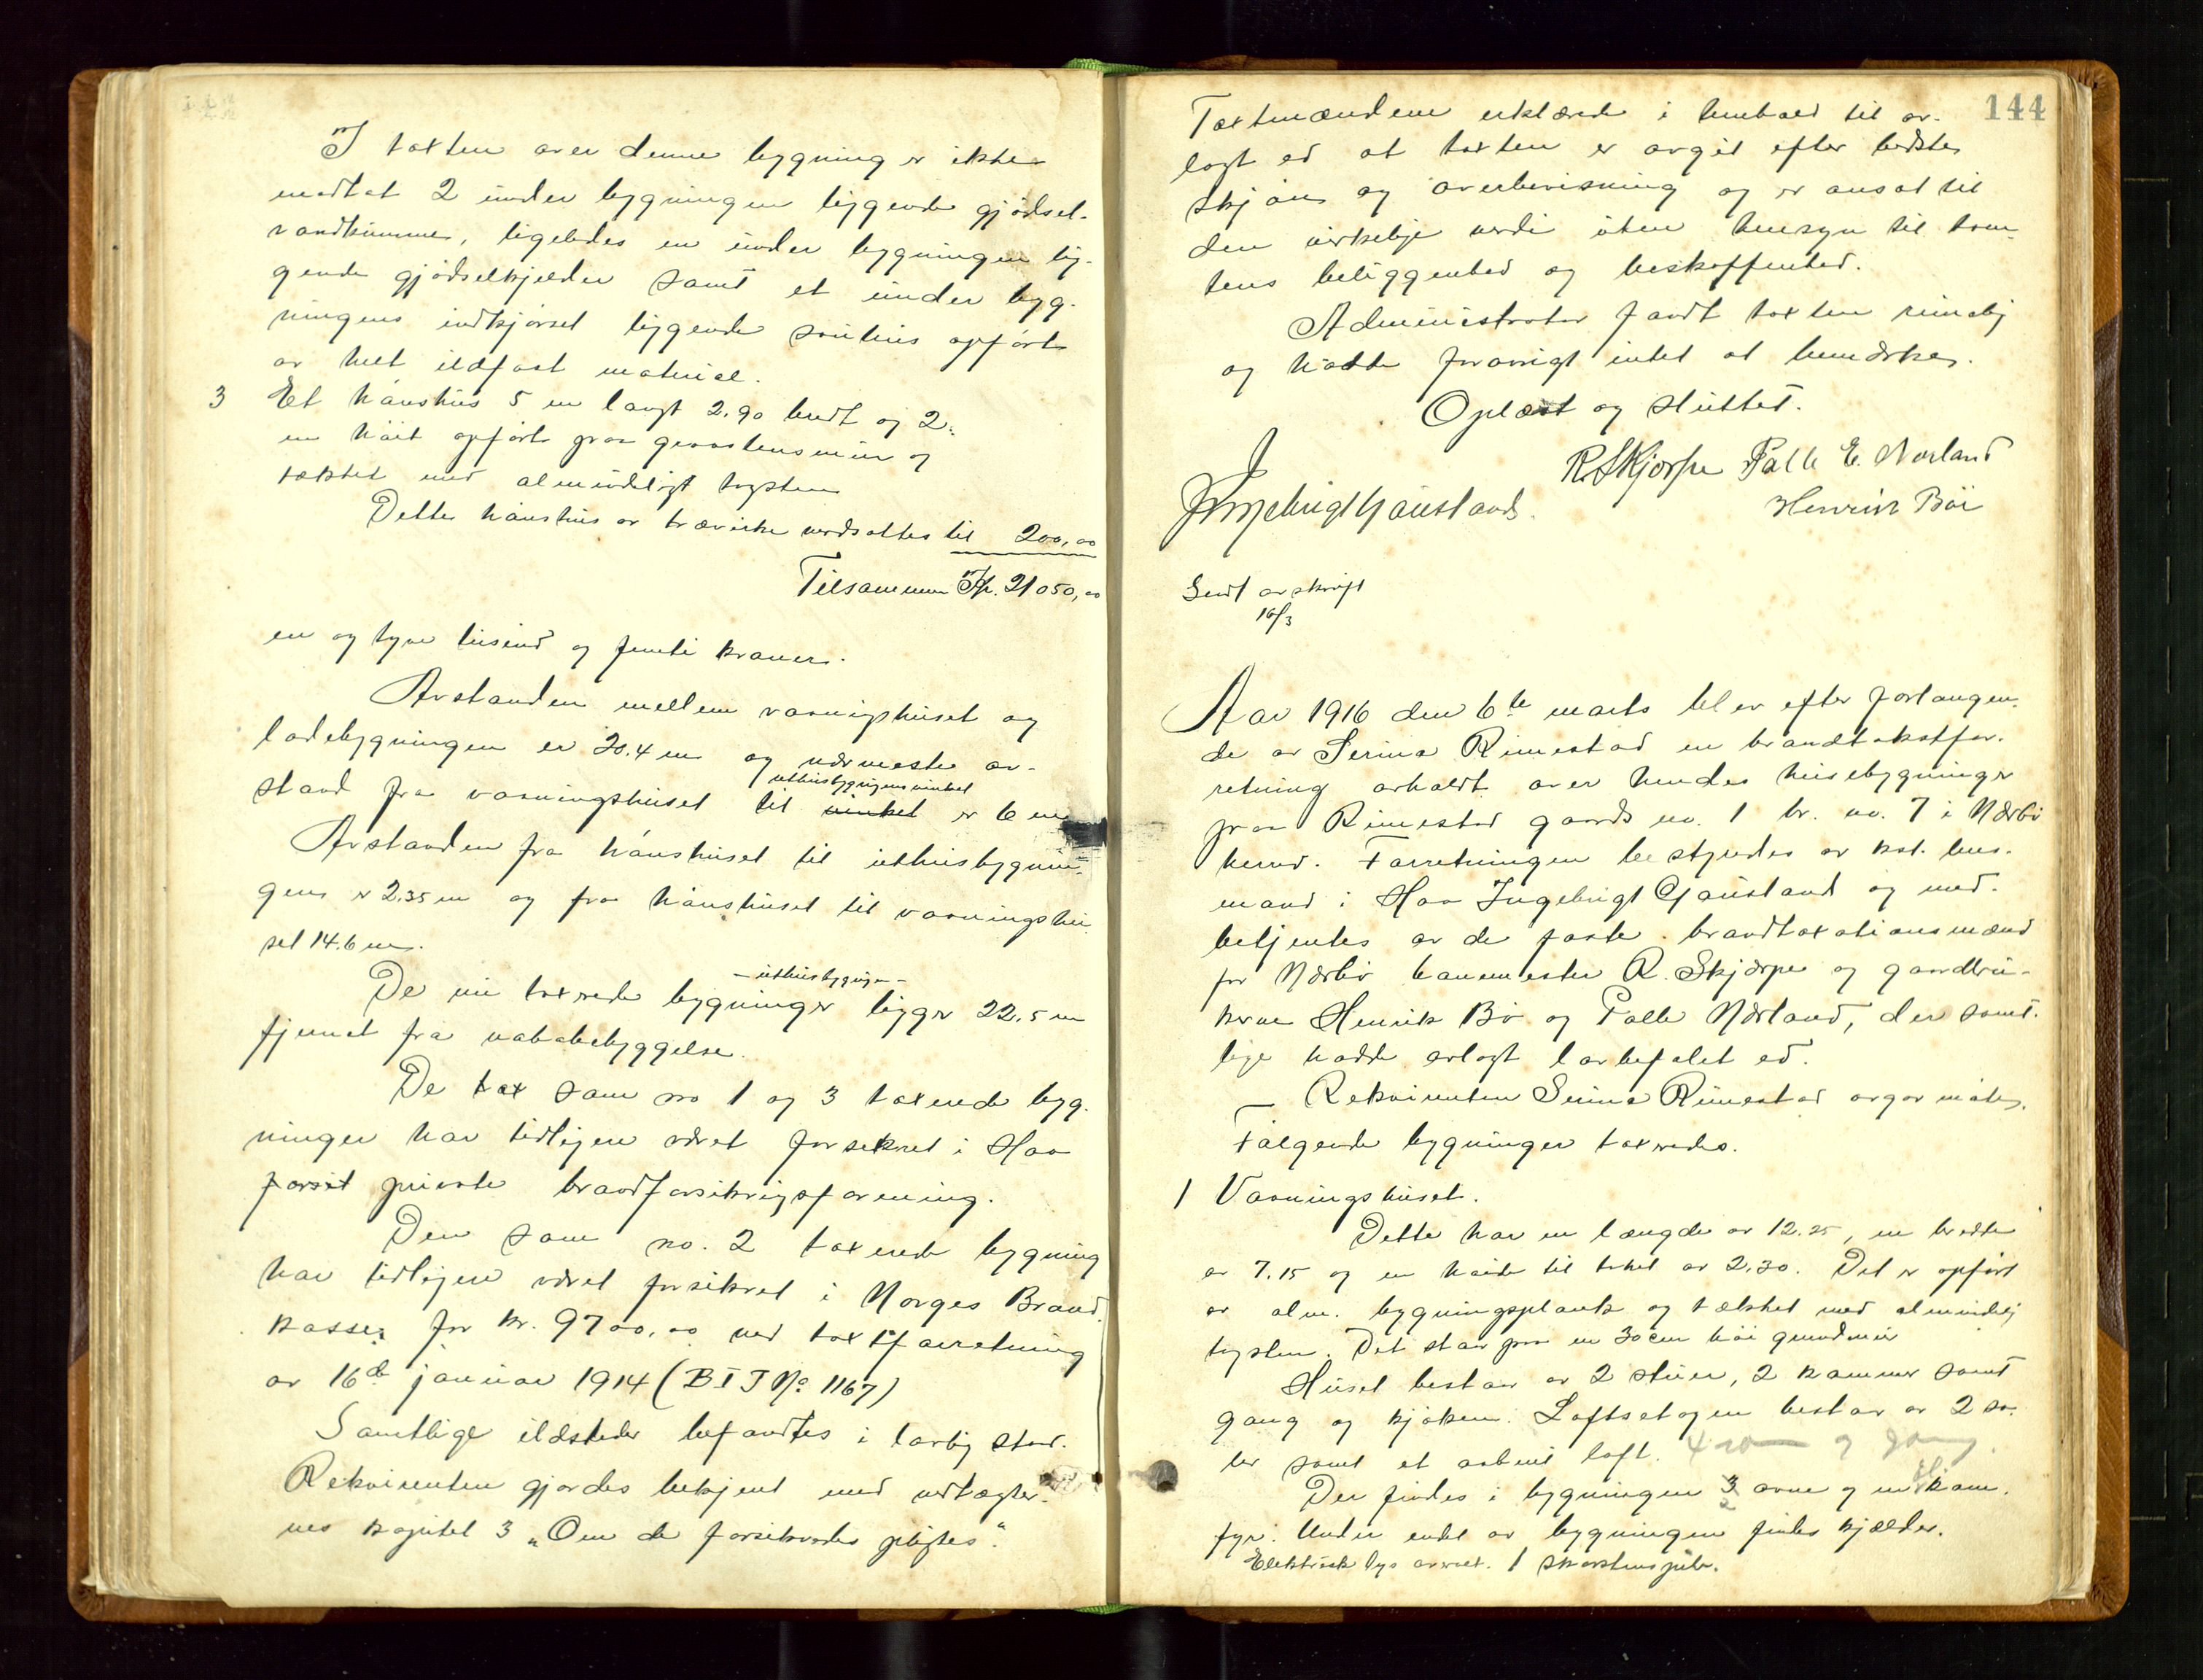 I taxten over denne bygning er ikke
medtat 2 under bygningen liggende gjødsel-
vandkummer, ligeledes en under bygningen lig-
gende gjødselkjelder samt et under byg-
ningens indkjørsel liggende opført
av helt ildfast materiel.
3 Et hønshus 5 m langt 2.90 bredt og 2.
m høit opført paa graastensmur og
tækket med almindeligt tagsten
Dette hønshus av trævirke verdsattes til 200,00
Tilsammen Kr. 21050,00
en og tyve tusind og femti kroner.
Avstanden mellem vaaningshuset og
ladebygningen er 20.4 m og nærmeste av-
uthusbygningens vinkel
stand fra vaaningshuset til vinkel er 6 m
Avstanden fra hønshuset til uthusbygnin-
gen er 2.35 m og fra hønshuset til vaaningshu-
set 14.6 m.
- uthusbygningen -
De nu taxerede bygninger ligger 22.5 m
fjernet fra nabobebyggelse.
De tax som no 1 og 3 taxerede byg-
ninger har tidligere været forsikret i Haa
private brandforsikringsforening.
Den som no. 2 taxerede bygning
har tidligere været forsikret i Norges Brand-
kasse for kr. 9700,00 ved taxtforretning
av 16de januar 1914 (B I J No 1167)
Samtlige ildsteder befandtes i lovlig stand.
Rekvirenten gjordes bekjent med vedtægter-
nes kapitel 3 „Om de forsikredes pligter".
144
Taxtmændene erklærede i henhold til av-
lagt ed at taxten er avgit efter bedste
skjøn og overbevisning og er ansat til
den virkelige verdi uten hensyn til tom-
tens beliggenhed og beskaffenhed.
Administrator fandt taxten rimelig
og hadde forøvrigt intet at bemærke.
Oplæst og sluttet.
R Skjørpe Palle E. Nærland
Ingebrigt Gausland. Henrik Bö
Sendt avskrift
16/3
Aar 1916 den 6te marts blev efter forlangen-
de av Serina Rimestad en brandtakstfor-
retning avholdt over hendes husebygninger
paa Rimestad gaards no. 1 br. no. 7 i Nærbö
herred. Forretningen bestyredes av kst. lens-
mand i Haa Ingebrigt Gausland og med-
betjentes av de faste brandtaxationsmænd
for Nærbö banemester R. Skjørpe og gaardbru-
kerne Henrik Bö og Palle Nærland, der samt-
lige hadde avlagt lovbefalet ed.
Rekvirenten Serina Rimestad avgav møte.
Følgende bygninger taxeredes.
1 Vaaningshuset.
Dette har en længde av 12.25, en bredde
av 7.15 og en høide til taket av 2.30. Det er opført
av alm. bygningsplank og tækket med almindelig
tagsten. Det staar paa en 30 cm høi grundmur
Huset bestaar av 2 stuer, 2 kammer samt
gang og kjøken. Loftsetagen bestaar av 2 sa-
ler samt et aapent loft. 4 rom og gang.
Der findes i bygningen 3 2 ovne og en kom-
fyr. Under endel av bygningen findes kjælder.
Elektrisk lys overalt. 1 skorstenspibe.